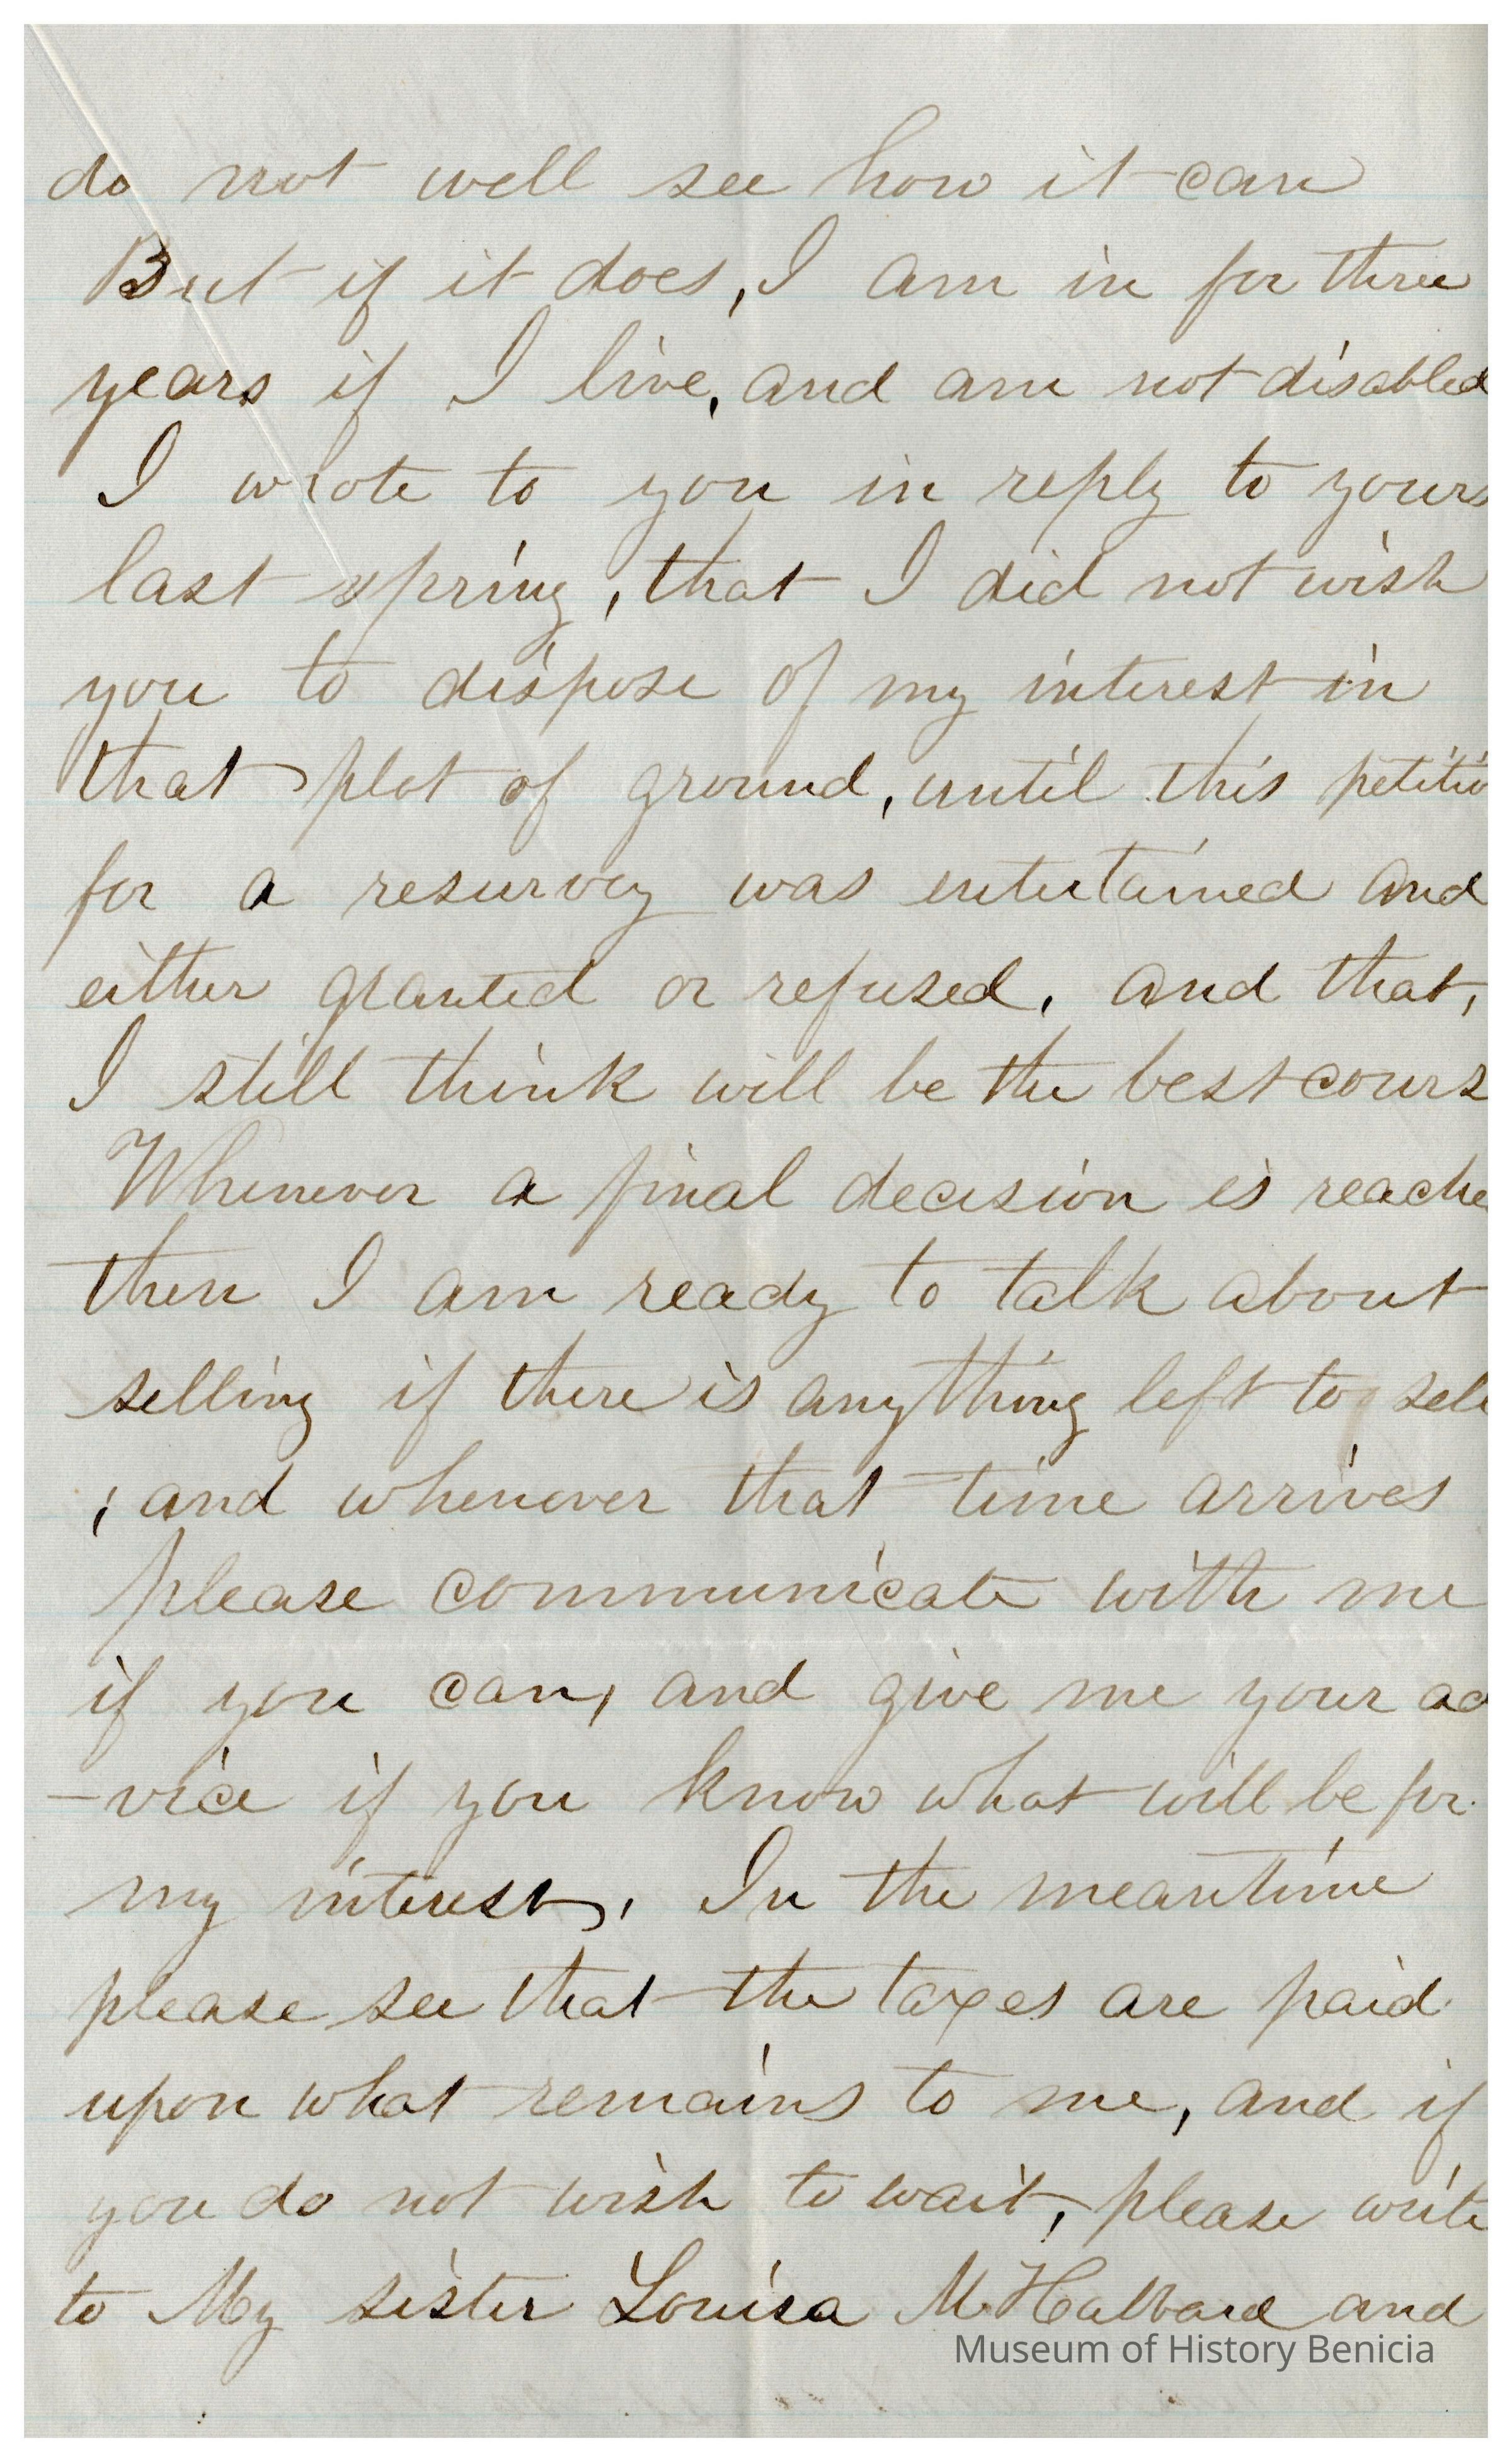 do not well see how it can
But if it does, I am in for three
years if I live, and am not disabled
I wrote to you in reply to yours
last spring, that I did not wish
you to dispose of my interest in
that plot of ground, until this petitio
for a resurvey was entertained and
either granted or refused. and that,
I still think will be the best cours
Whenever a final decision is reache
then I am ready to talk about
selling if there is anything left to sell
, and whenever that time arrives
please communicate with me
if you can, and give me your ad
-vice if you know what will be for
my interest. In the meantime
please see that the taxes are paid
upon what remains to me, and if
you do not wish to wait, please write
to My sister Louisa M. and
Museum of History Benicia